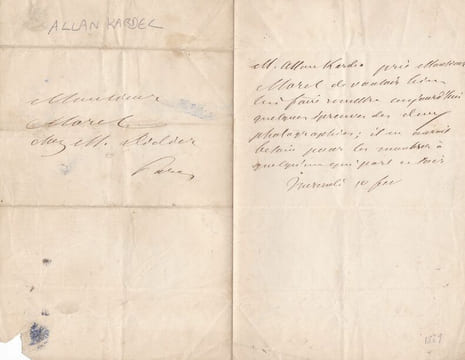 ALLAN KARDEC
Monsieur
Morel
chez M. Didier
Paris
M. Allan Kardec prie Monsieur
Morel de vouloir bien
lui faire remettre aujourd'hui
quelques épreuves des deux
photographies; il en aurait
besoin pour les montrer à
quelqu'un qui part ce soir
Mercredi 10